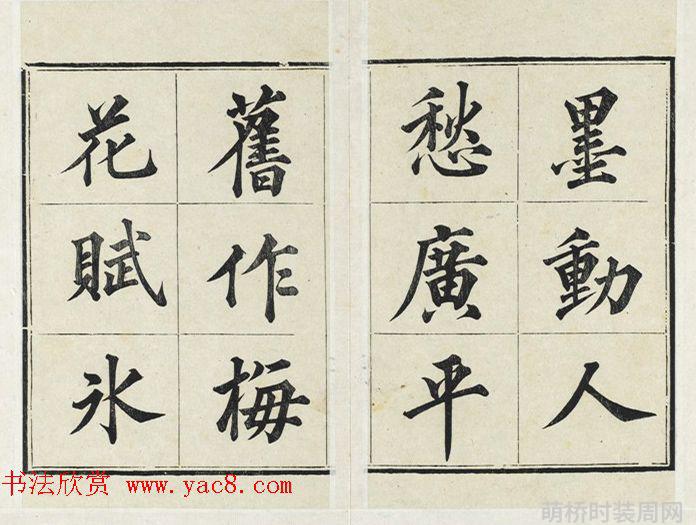 墨動人
愁廣平
舊作梅
花賦氷
书法欣赏 www.yac8.com
萌桥时装周网